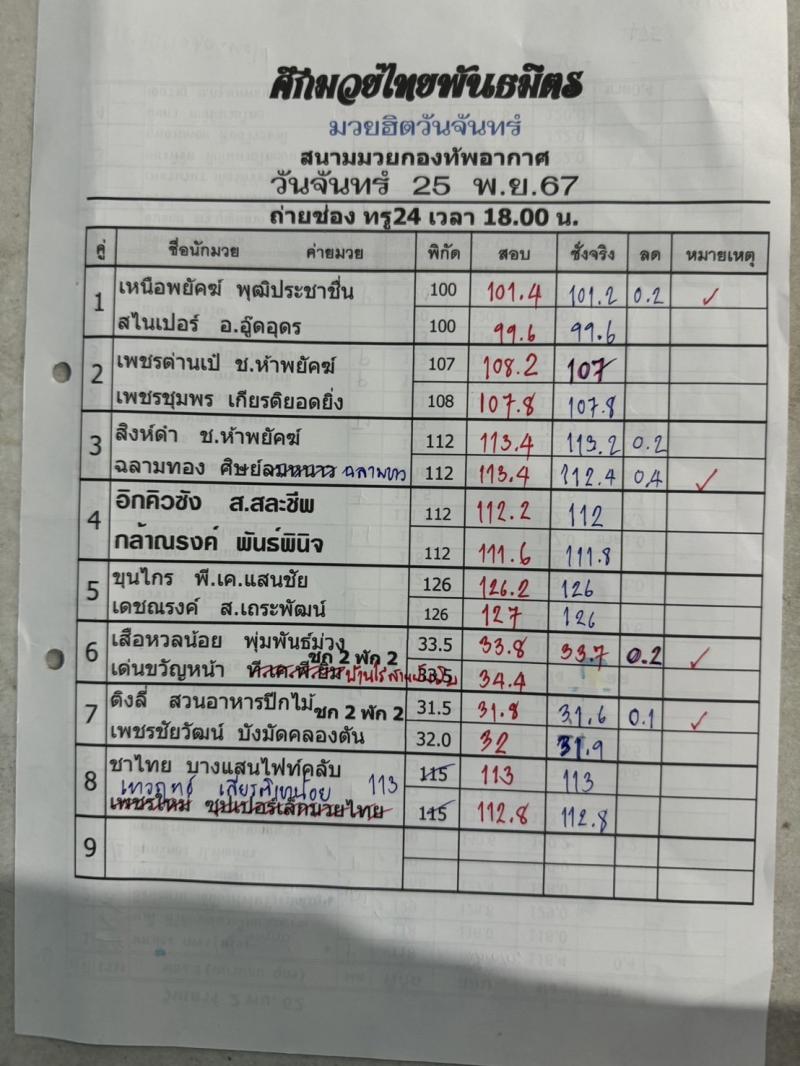 ศึกมวยไทยพันธมิตร
มวยฮิตวันจันทร์
สนามมวยกองทัพอากาศ
วันจันทร์ 25 พ.ย.67
ถ่ายช่อง ทรู24 เวลา 18.00 น.
คู่ ชื่อนักมวย ค่ายมวย พิกัด สอบ ชั่งจริง ลด หมายเหตุ
1 เหนือพยัคฆ์ พุฒิประชาชื่น 100 101.4 101.2 0.2 ✓
สไนเปอร์ อ.อู๊ดอุดร 100 99.6 99.6
2 เพชรด่านเป๋ ช.ห้าพยัคฆ์ 107 108.2 107
เพชรชุมพร เกียรติยอดยิ่ง 108 107.8 107.8
3 สิงห์ดำ ช.ห้าพยัคฆ์ 112 113.4 113.2 0.2
ฉลามทอง ศิษย์ฉลามขาว 112 113.4 112.4 0.4 ✓
4 อิกคิวซัง ส.สละชีพ 112 112.2 112
กล้าณรงค์ พันธ์พินิจ 112 111.6 111.8
5 ขุนไกร พี.เค.แสนชัย 126 126.2 126
เดชณรงค์ ส.เถระพัฒน์ 126 127 126
6 เสือหวลน้อย พุ่มพันธ์ม่วง 33.5 33.8 33.7 0.2 ✓
ชก 2 พัก 2
เด่นขวัญหน้า 33.5 34.4
7 ดิงลี่ สวนอาหารปีกไม้ 31.5 31.8 31.6 0.1 ✓
ชก 2 พัก 2
เพชรชัยวัฒน์ บังมัดคลองตัน 32.0 32 31.9
8 ชาไทย บางแสนไฟท์คลับ 115 113 113
113
เพชรใหม่ ซุปเปอร์เล็กมวยไทย 115 112.8 112.8
9